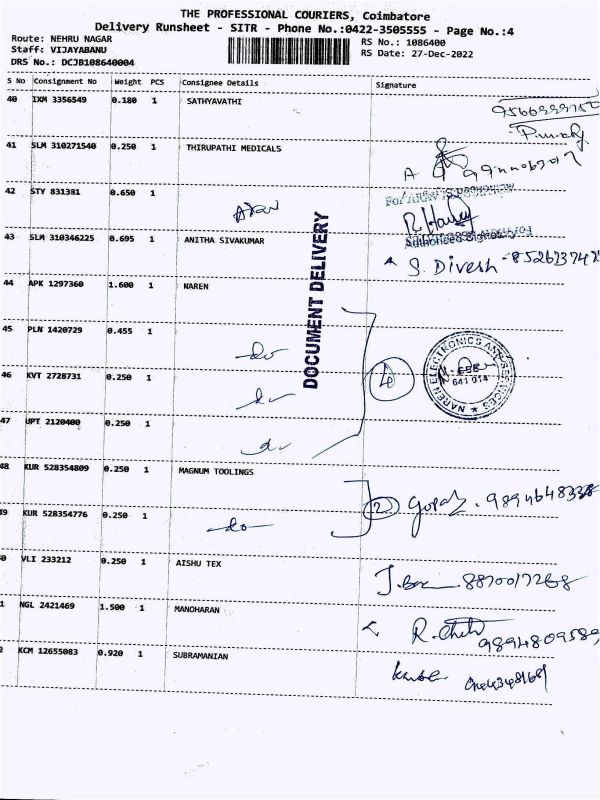 THE PROFESSIONAL COURIERS, Coimbatore
Delivery Runsheet - SITR - Phone No.:0422-3505555 - Page No.:4
Route: NEHRU NAGAR
Staff: VIJAYABANU
DRS No.: DCJB108640004
RS No.: 1086400
RS Date: 27-Dec-2022
S No Consignment No Weight PCS Consignee Details Signature
40 IXM 3356549 0.180 1 SATHYAVATHI
41 SLM 310271540 0.250 1 THIRUPATHI MEDICALS
42 STY 831381 0.650 1
Authorised Signatory
43 SLM 310346225 0.695 1 ANITHA SIVAKUMAR
S. Divesh
DOCUMENT DELIVERY
44 APK 1297360 1.600 1 NAREN
45 PLN 1420729 0.455 1 do
46 KVT 2728731 0.250 1 do
4
NAREN ELECTRONICS AND SERVICES
641 014
47 UPT 2120400 0.250 1 do
48 KUR 528354809 0.250 1 MAGNUM TOOLINGS
2 Gopal
49 KUR 528354776 0.250 1 do
0 VLI 233212 0.250 1 AISHU TEX
1 NGL 2421469 1.500 1 MANOHARAN
9894809589
2 KCM 12655083 0.920 1 SUBRAMANIAN